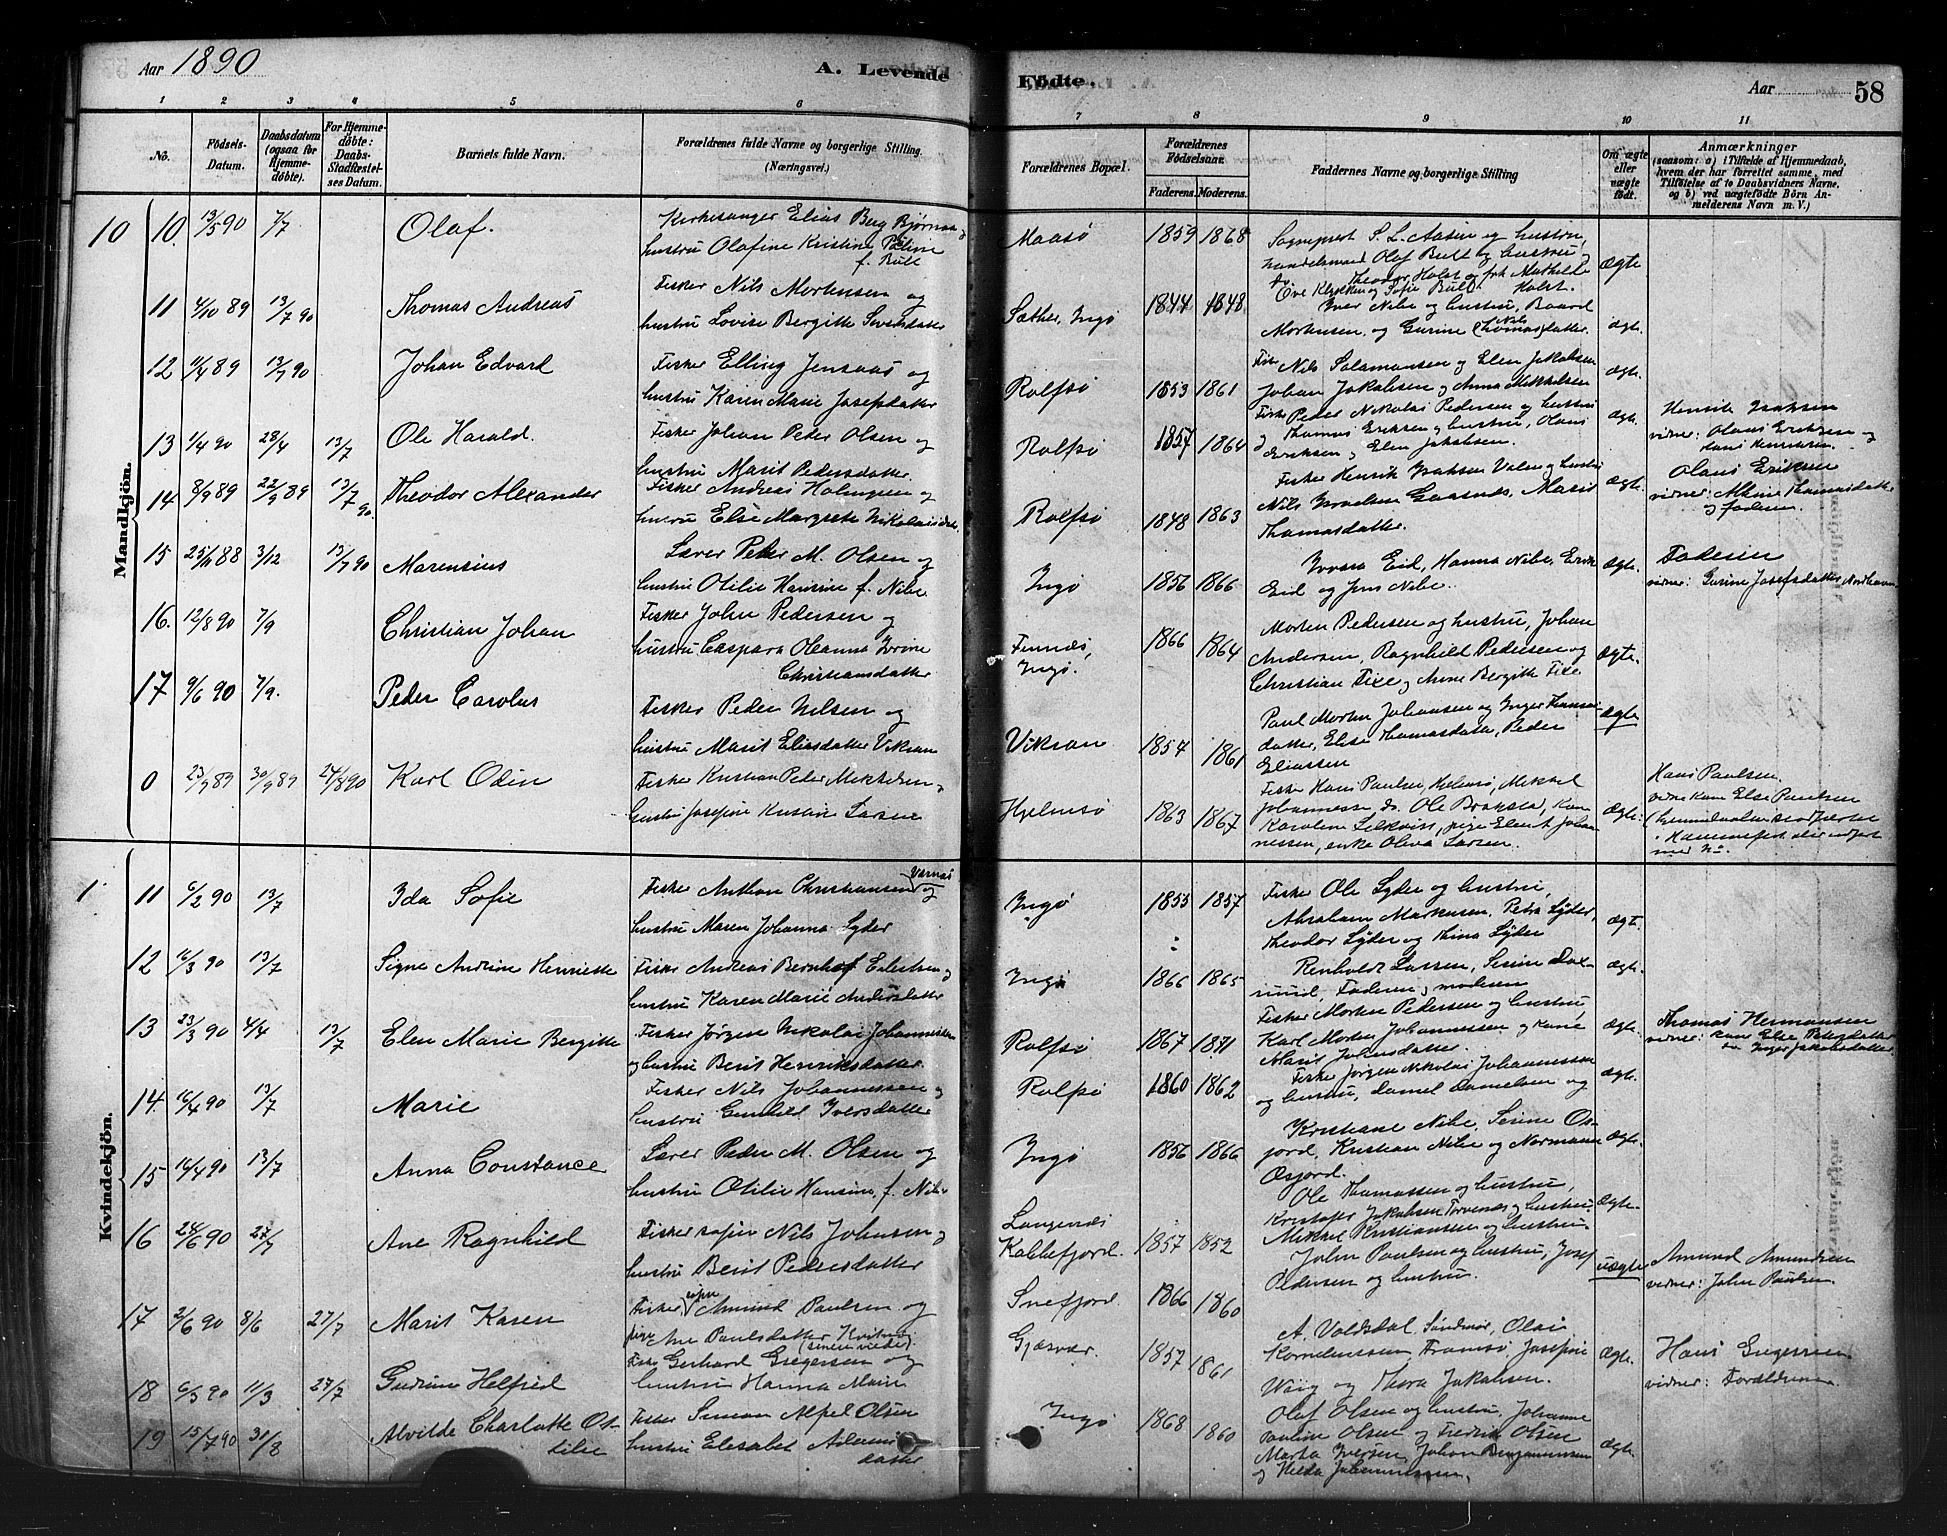 Aar 1890
A. Levende
Fødte.
Aar
58
1 2 3 4 5 6 7 8 9 10 11
No.
Fødsels-
Datum.
Daabsdatum
(ogsaa for
Hjemme-
døbte).
For Hjemme-
døbte:
Daabs-
Stadfæstel-
ses Datum.
Barnets fulde Navn.
Forældrenes fulde Navne og borgerlige Stilling.
(Næringsvei.)
Forældrenes Bopæl.
Forældrenes
Fødselsaar.
Faderens. Moderens.
Faddernes Navne og borgerlige Stilling
Om ægte
eller
uægte
født.
Anmærkninger
(saasom: a) i Tilfælde af Hjemmedaab,
hvem der har forrettet samme, med
Tilføielse af to Daabsvidners Navne,
og b) ved uægtefødte Børn An-
melderens Navn m. V.)
Mandkjön.
10 10. 13/5 90 7/7 Olaf.
Kirkesanger Elias Berg Bjørnaa
hustru Olafine Kristine Petrine
f. Bull
Maasø 1859 1868
Sognepræst S. L. Aasen og hustru,
Handelsmand Olaf Bull og hustru,
Theodor Holst og frk Mathilde
Holst.
ægte
11 4/10 89 13/7 90 Thomas Andreas
Fisker Nils Mortensen og
hustru Lovise Bergitte
Sæther, Ingø 1844 1848
Iver Nilse og hustru, Baard
Mortensen og Gurine Nils
(Thomas)datter.
ægte
12 11/4 89 13/7 90 Johan Edvard
Fisker Elling Jensaas og
hustru Karen Marie Josefsdatter
Rolfsø 1853 1861
Nils Salamonsen og Elen Jakobsen
Johan Jakobsen og Anna Mikkelsen
ægte
13 1/4 90 28/4 13/7 Ole Harald.
Fisker Johan Peder Olsen og
hustru Marit Pedersdatter.
Rolfsø 1857 1864
Fisker Peder Nikolai Pedersen og hustru
Thomas Eriksen og hustru, Olaus
Eriksen og Elen Jakobsen.
ægte
Henrik Isaksen
vidner: Olaus Eriksen og
14 8/9 89 22/9 89 13/7 90. Theodor Alexander
Fisker Andreas Holmgren og
hustru Else Margrete Nikolaisdatr.
Rolfsø 1848 1863
Fisker Henrik Isaksen Valen og hustru
Nils Israelsen Gaasnæs, Marit
Thomasdatter.
ægte
Olaus Eriksen
vidner: Thomasdatter
og faderen.
15 25/11 88 3/12 13/7 90 Marensius
Lærer Peder M. Olsen og
hustru Otilie Hansine f. Nilse
Ingø 1856 1866
Eid, Hanna Nilse,
Eid og Jens Nilse.
ægte
Faderen
vidner: Gurine Josefsdatter Nordhavn
16. 12/8 90 7/9 Christian Johan
Fisker John Pedersen og
hustru Caspara Oleanna Irine
Christiansdatter
Finnes,
Ingø. 1866 1864
Morten Pedersen og hustru, Johan
Andersen, Ragnhild Pedersen og
Christian Fixe og Anne Bergitte Fixe
ægte
17 9/6 90 7/9. Peder Carolus
Fisker Peder Nilsen og
hustru Marit Eliasdatter Vikran
Vikran 1854 1861
Paul Morten Johansen og Inger Hans-
datter, Else Thomasdatter, Peder
Eliassen
ægte
0 23/9 89 30/9 89 24/8 90 Karl Odin
Fisker Kristian Peder Mikkelsen,
hustru Josefine Larsen
Hjelmsø 1863 1867
Fisker Hans Paulsen, Hjelmsø, Mikkel
Johannessen ds. Ole
pige Elen A. Johan-
nessen, enke Oliva Larsen.
ægte
Hans Paulsen.
vidne kone Else Paulsen
Kvindekjön.
1 11 6/2 90 13/7 Ida Sofie
Fisker Anthon Christiansen Værnæs og
hustru Maren Johanna Lyder
Ingø 1855 1857
Fisker Ole Lyder og hustru,
Abraham Markusen, Petra Lyder,
Theodor Lyder og Thina Lyder
ægte
12 16/3 90 13/7 Signe Andrine Henriette
Fisker Andreas Bernhof
hustru Karen Marie Andersdatter
Ingø 1866 1865
Renholdt Larsen, Serine
Faderen og moderen
ægte
13 23/3 90 4/4 13/7 Elen Marie Bergitte
Fisker Jørgen Nikolai Johannessen
og hustru Berit Henriksdatter.
Rolfsø 1867 1871
Fisker Morten Pedersen og hustru
Karl Morten Johannessen og kone
Marit Johnsdatter.
ægte
Thomas Hermansen
vidner: kone Else Pedersdatter
Inger Jakobsdatter.
14. 16/4 90 13/7 Marie
Fisker Nils Johannessen og
hustru Gunhild Iversdatter
Rolfsø 1860 1862
Fisker Jørgen Nikolai Johannessen
og hustru, Daniel Danielsen og
ægte.
15 16/4 90 13/7 Anna Constance
Lærer Peder M. Olsen og
hustru Otilie Hansine, f. Nilse
Ingø 1856 1866
Kristiane Nilse, Serine Os-
jord, Kristian Nilse og Normann
Osjord.
ægte
16 24/6 90 27/7 Ane Ragnhild
Fisker Nils Johnsen og
hustru Berit Pedersdatter
Langenæs
Kobbefjord. 1857 1852
Ole Thomassen og hustru,
Kristofer Jakobsen og hustru,
Mikkel Kristiansen og hustru.
ægte
17 2/6 90 8/6 27/7 Marit Karen
Fisker Amund Paulsen og
pige Ane Paulsdatter
(senere viede).
Snefjord. 1866 1860
John Paulsen og hustru, Josef
Pedersen og hustru.
uægte
Amund Amundsen
vidner: John Paulsen
18 6/3 90 11/3 27/7 Gudrun Helfred
Fisker Gerhard Gregersen og
hustru Hanna Marie
Gjæsvær. 1857 1861
A. Voldsdal Søndmør, Olai
Kornelinssen Tromsø, Josefine
Waig og Thora Jakobsen.
ægte
Hans
vidner: Forældrene
19 15/7 90 31/8 Alvilde Charlotte Ot-
tilie
Fisker Simon Olsen
hustru Elisabet Adams-
datter
Ingø 1868 1860
Olaf Olsen og hustru, Johanne
Pauline Olsen og Fredrik Olsen
Marta Iversen, Johan Benjaminsen
og Hilda Johannessen.
ægte